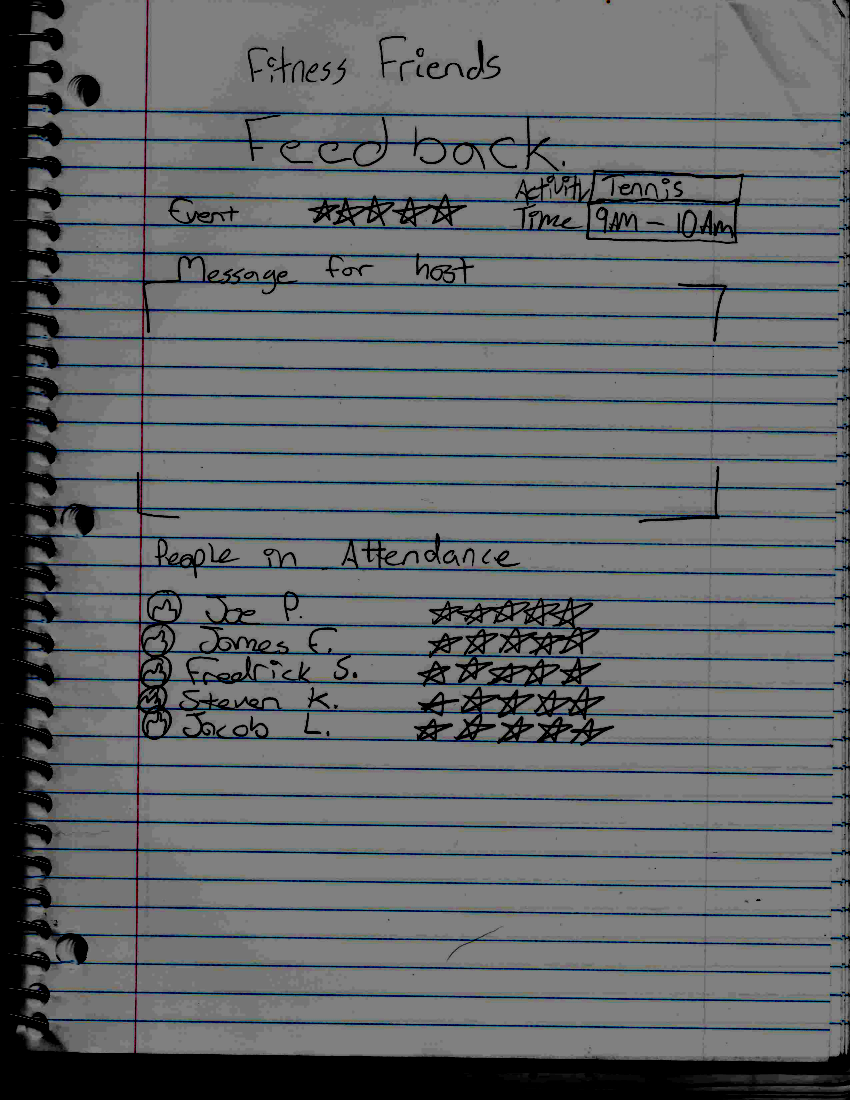 Fitness Friends
Feedback.
Activity Tennis
Event Time 9AM - 10AM
Message for host
People in Attendance
Joe P.
James F.
Fredrick S.
Steven K.
Jacob L.